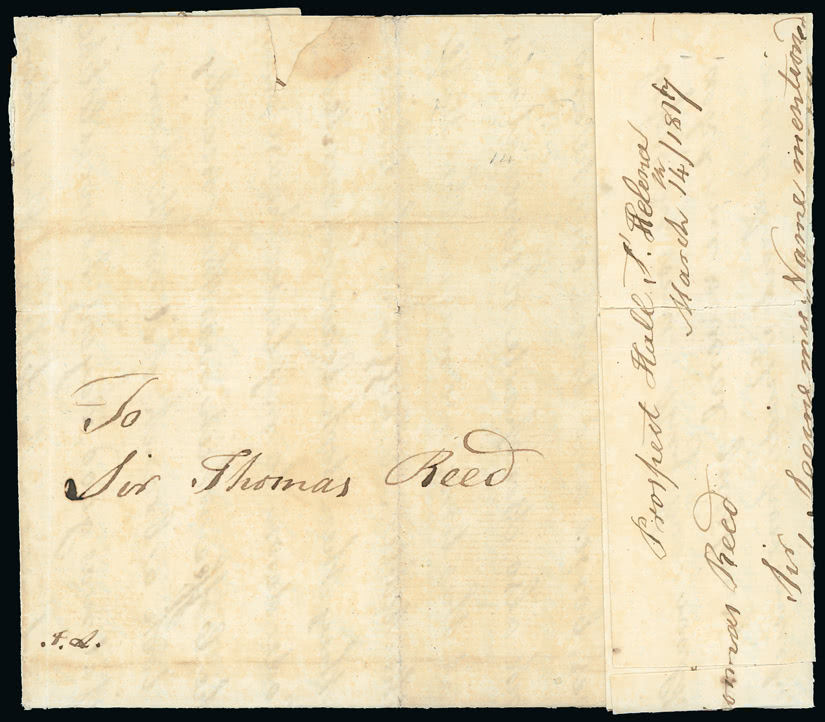 To
Sir Thomas Reed
Prospect Hall St Helena
March 14th/1817
omas Reed
Sir
Seeing my Name mentioned